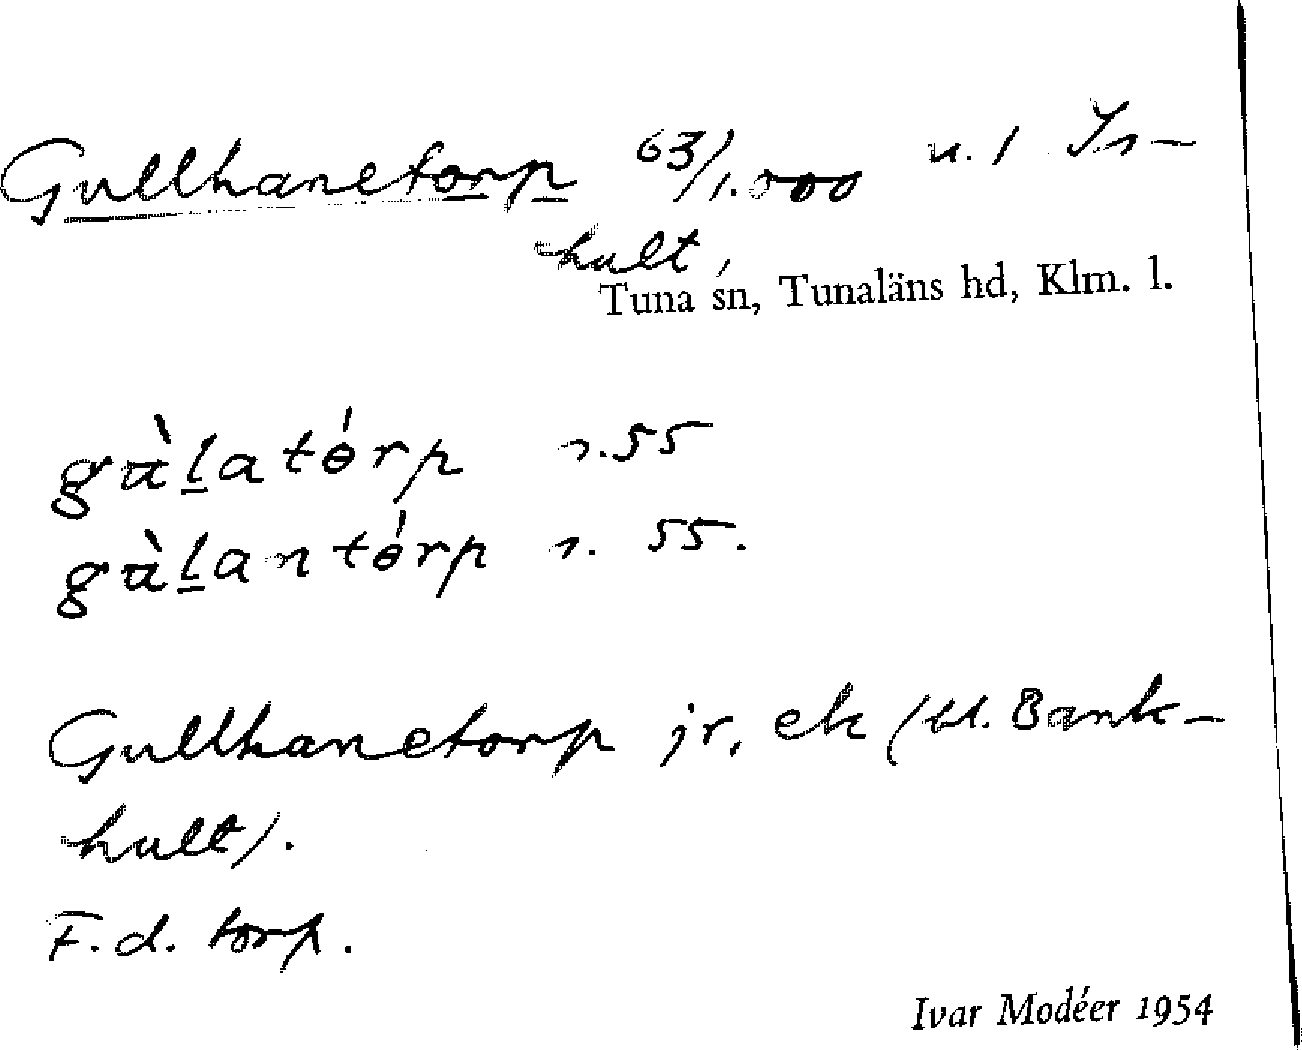 Gullhanetorp 63/1.000 u. 1 Is-
hult,
Tuna sn, Tunaläns hd, Klm. l.
gàḻatǿrp s.55
gàḻantǿrp s. 55.
Gullhanetorp jr, ek (bl. Bank-
hult).
F.d. torp.
Ivar Modéer 1954